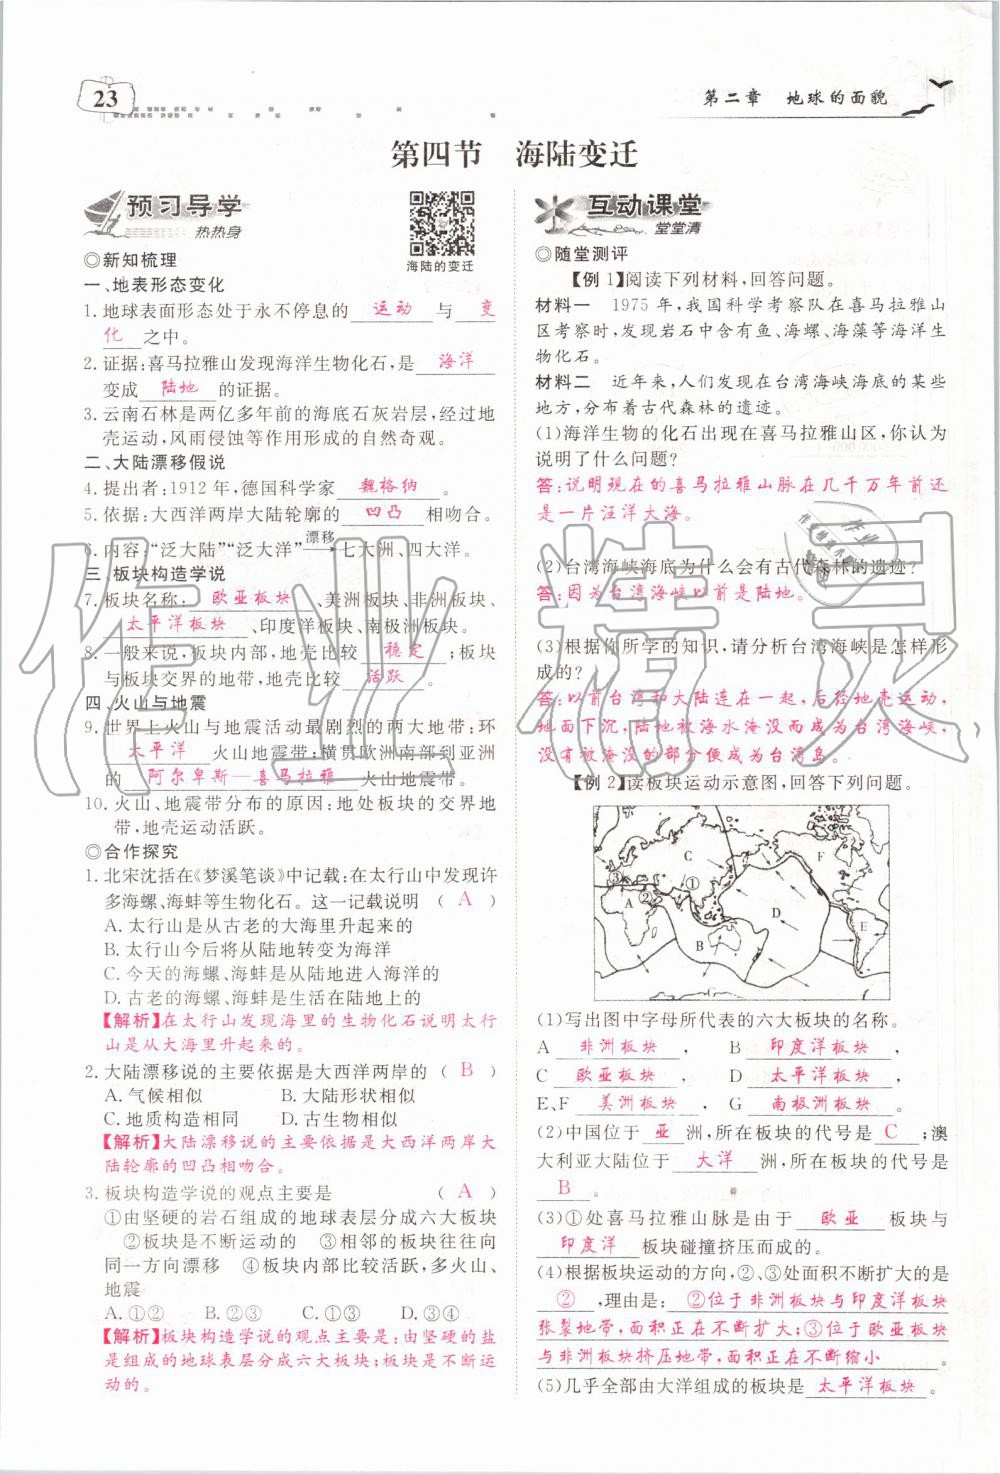 23
第二章 地球的面貌
第四节 海陆变迁
预习导学
热热身
海陆的变迁
◎新知梳理
一、地表形态变化
1. 地球表面形态处于永不停息的 运动 与 变
化 之中。
2. 证据:喜马拉雅山发现海洋生物化石,是 海洋
变成 陆地 的证据。
3. 云南石林是两亿多年前的海底石灰岩层,经过地
壳运动,风雨侵蚀等作用形成的自然奇观。
二、大陆漂移假说
4. 提出者:1912年,德国科学家 魏格纳 。
5. 依据:大西洋两岸大陆轮廓的 凹凸 相吻合。
6. 内容:“泛大陆”“泛大洋” 漂移→ 七大洲、四大洋。
三、板块构造学说
7. 板块名称: 欧亚板块 、美洲板块、非洲板块、
太平洋板块 、印度洋板块、南极洲板块。
8. 一般来说,板块内部,地壳比较 稳定 ;板块
与板块交界的地带,地壳比较 活跃 。
四、火山与地震
9. 世界上火山与地震活动最剧烈的两大地带:环
太平洋 火山地震带;横贯欧洲南部到亚洲
的 阿尔卑斯—喜马拉雅 火山地震带。
10. 火山、地震带分布的原因:地处板块的交界地
带,地壳运动活跃。
◎合作探究
1. 北宋沈括在《梦溪笔谈》中记载:在太行山中发现许
多海螺、海蚌等生物化石。这一记载说明 ( A )
A. 太行山是从古老的大海里升起来的
B. 太行山今后将从陆地转变为海洋
C. 今天的海螺、海蚌是从陆地迁移到海洋的
D. 古老的海螺、海蚌是生活在陆地上的
【解析】在太行山发现海里的生物化石说明太行
山是从大海里升起来的。
2. 大陆漂移说的主要依据是大西洋两岸的 ( B )
A. 气候相似 B. 大陆形状相似
C. 地质构造相同 D. 古生物相似
【解析】大陆漂移说的主要依据是大西洋两岸大
陆轮廓的凹凸相吻合。
3. 板块构造学说的观点主要是 ( A )
①由坚硬的岩石组成的地球表层分成六大板块
②板块是不断运动的 ③相邻的板块往往向
同一方向漂移 ④板块内部比较活跃,多火山、
地震
A. ①② B. ②③ C. ①③ D. ②④
【解析】板块构造学说的观点主要有:由坚硬的岩
是组成的地球表层分成六大板块;板块是不断运
动的。
互动课堂
堂堂清
◎随堂测评
【例1】阅读下列材料,回答问题。
材料一 1975年,我国科学考察队在喜马拉雅山
区考察时,发现岩石中含有鱼、海螺、海藻等海洋生
物化石。
材料二 近年来,人们发现在台湾海峡海底的某些
地方,分布着古代森林的遗迹。
(1)海洋生物的化石出现在喜马拉雅山区,你认为
说明了什么问题?
答:说明现在的喜马拉雅山脉在几千万年前还
是一片汪洋大海。
(2)台湾海峡海底为什么会有古代森林的遗迹?
答:因为台湾海峡以前是陆地。
(3)根据你所学的知识,请分析台湾海峡是怎样形
成的?
答:以前台湾和大陆连在一起,后经地壳运动,
地面下沉,陆地被海水淹没而成为台湾海峡,
没有被淹没的部分便成为台湾岛。
【例2】读板块运动示意图,回答下列问题。
A B C D E F G ① ② ③
(1)写出图中字母所代表的六大板块的名称。
A 非洲板块 , B 印度洋板块 ,
C 欧亚板块 , D 太平洋板块 ,
E、F 美洲板块 , G 南极洲板块 。
(2)中国位于 亚 洲,所在板块的代号是 C ;澳
大利亚大陆位于 大洋 洲,所在板块的代号是
B 。
(3)①处喜马拉雅山脉是由于 欧亚 板块与
印度洋 板块碰撞挤压而成的。
(4)根据板块运动的方向,②、③处面积不断扩大的是
② ,理由是: ②位于非洲板块与印度洋板块
张裂地带,面积正在不断扩大;③位于欧亚板块
与非洲板块挤压地带,面积正在不断缩小 。
(5)几乎全部由大洋组成的板块是 太平洋板块 。
作业精灵